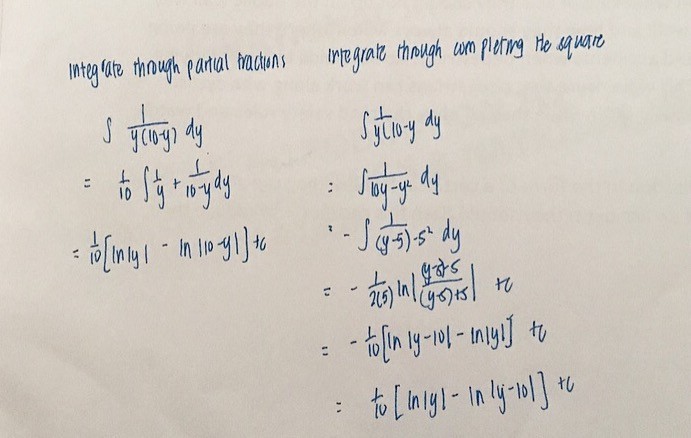 Integrate through partial fractions
∫ 1/(y(10-y)) dy
= 1/10 ∫ 1/y + 1/(10-y) dy
= 1/10 [ln|y| - ln|10-y|] +c
Integrate through completing the square
∫ 1/(y(10-y dy
= ∫ 1/(10y-y²) dy
= - ∫ 1/((y-5)-5²) dy
= - 1/(2(5)) ln|((y-5)-5)/((y-5)+5)| +c
= - 1/10 [ln|y-10| - ln|y|] +c
= 1/10 [ln|y| - ln|y-10|] +c